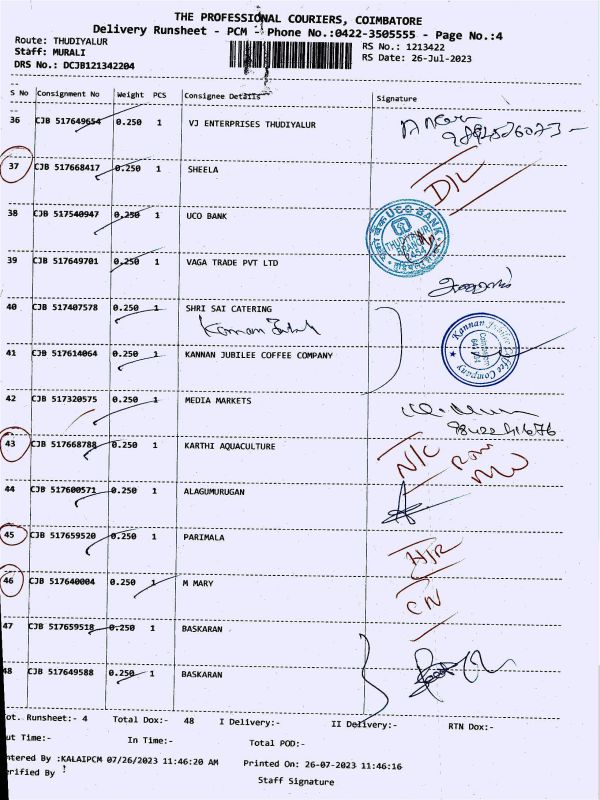 THE PROFESSIONAL COURIERS, COIMBATORE
Delivery Runsheet - PCM - Phone No.:0422-3505555 - Page No.:4
Route: THUDIYALUR
RS No.: 1213422
Staff: MURALI
RS Date: 26-Jul-2023
DRS No.: DCJB121342204
S No Consignment No Weight PCS Consignee Details Signature
36 CJB 517649654 0.250 1 VJ ENTERPRISES THUDIYALUR
37 CJB 517668417 0.250 1 SHEELA D/L
38 CJB 517540947 0.250 1 UCO BANK
UCO BANK
THUDIYALUR
BRANCH
39 CJB 517649701 0.250 1 VAGA TRADE PVT LTD
40 CJB 517407578 0.250 1 SHRI SAI CATERING
41 CJB 517614064 0.250 1 KANNAN JUBILEE COFFEE COMPANY
Kannan Jubilee Coffee Company
42 CJB 517320575 1 MEDIA MARKETS
43 CJB 517668788 0.250 1 KARTHI AQUACULTURE N/C
44 CJB 517600571 0.250 1 ALAGUMURUGAN
45 CJB 517659520 0.250 1 PARIMALA
46 CJB 517640004 0.250 1 M MARY CN
47 CJB 517659518 0.250 1 BASKARAN
48 CJB 517649588 0.250 1 BASKARAN
Tot. Runsheet:- 4 Total Dox:- 48 I Delivery:- II Delivery:- RTN Dox:-
Out Time:- In Time:- Total POD:-
Entered By :KALAIPCM 07/26/2023 11:46:20 AM Printed On: 26-07-2023 11:46:16
Verified By : Staff Signature